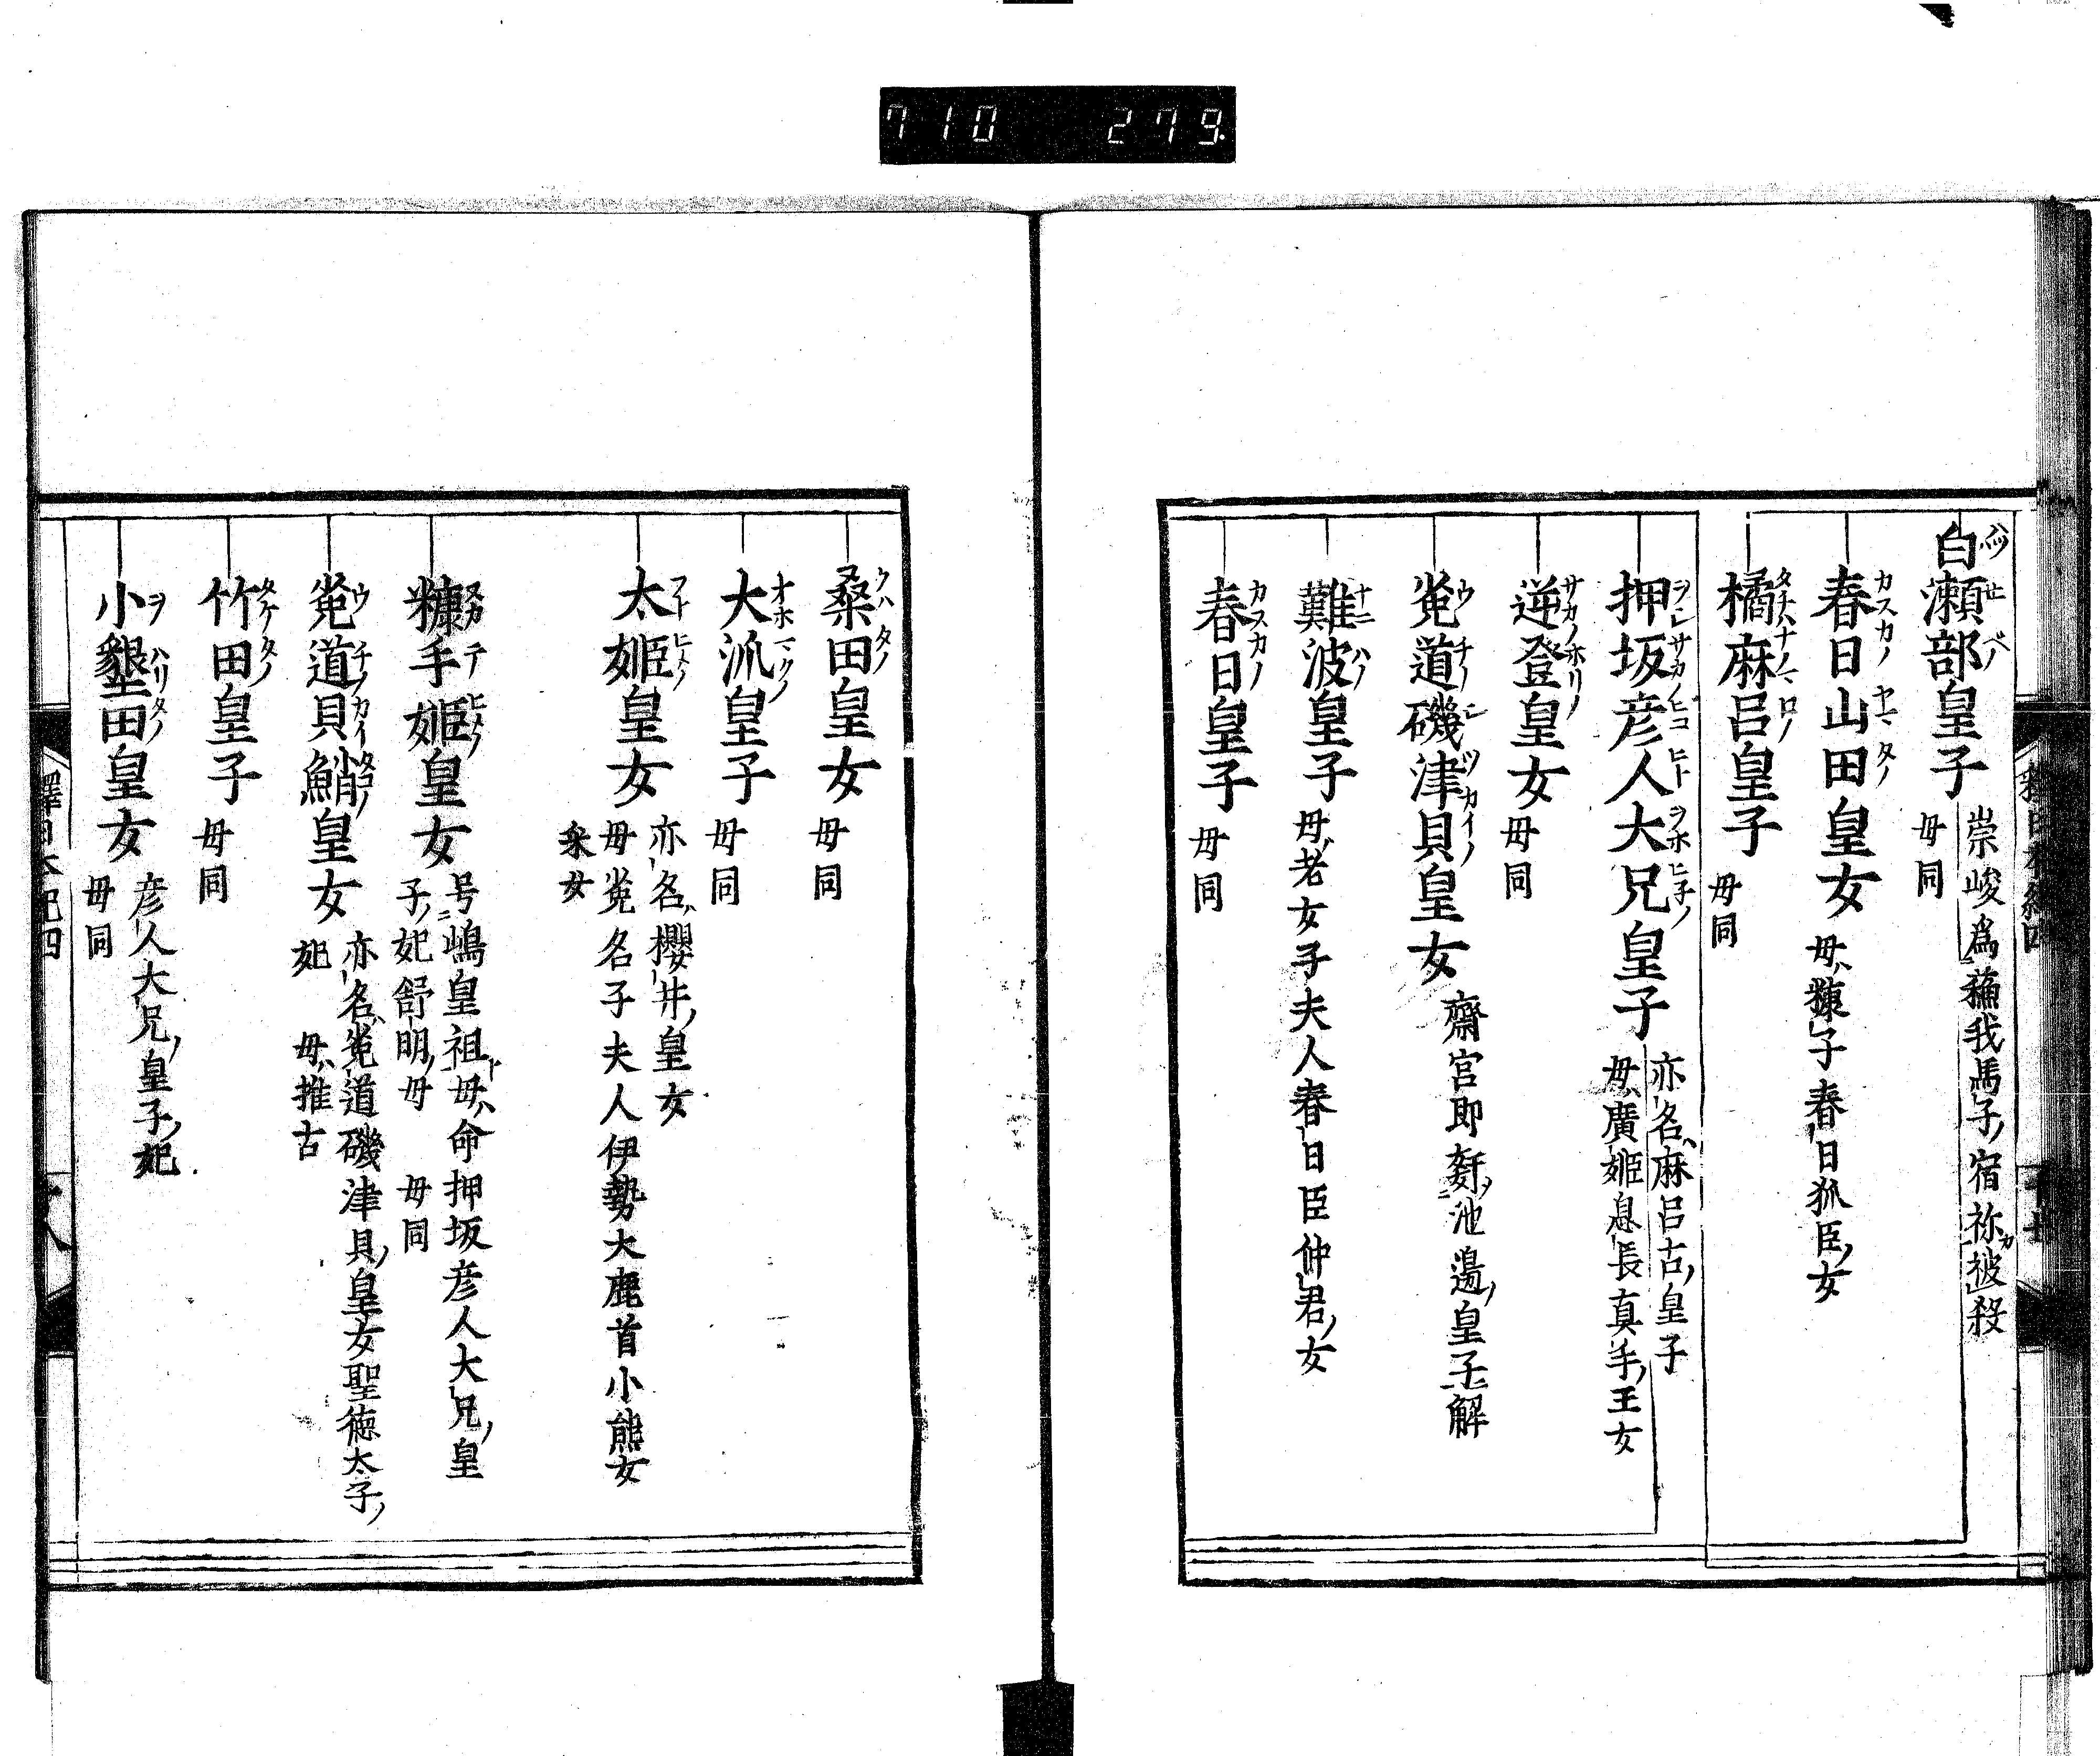 710 279
白瀬部皇子 崇峻為蘓我馬子宿祢被殺
母同
春日山田皇女 母糠子春日狐臣女
橘麻呂皇子 母同
押坂彦人大兄皇子 亦名麻呂古皇子
母廣姫息長真手王女
逆登皇女 母同
菟道磯津貝皇女 齋宮即姧池邊皇子解
難波皇子 母老女子夫人春日臣仲君女
春日皇子 母同
桑田皇女 母同
大派皇子 母同
太姫皇女 亦名櫻井皇女
母菟名子夫人伊勢大鹿首小熊女
采女
糠手姫皇女 号嶋皇祖母命押坂彦人大兄皇
子妃舒明母 母同
菟道貝鮹皇女 亦名菟道磯津貝皇女聖徳太子
妃 母推古
竹田皇子 母同
小墾田皇女 彦人大兄皇子妃
母同
釋日本紀四